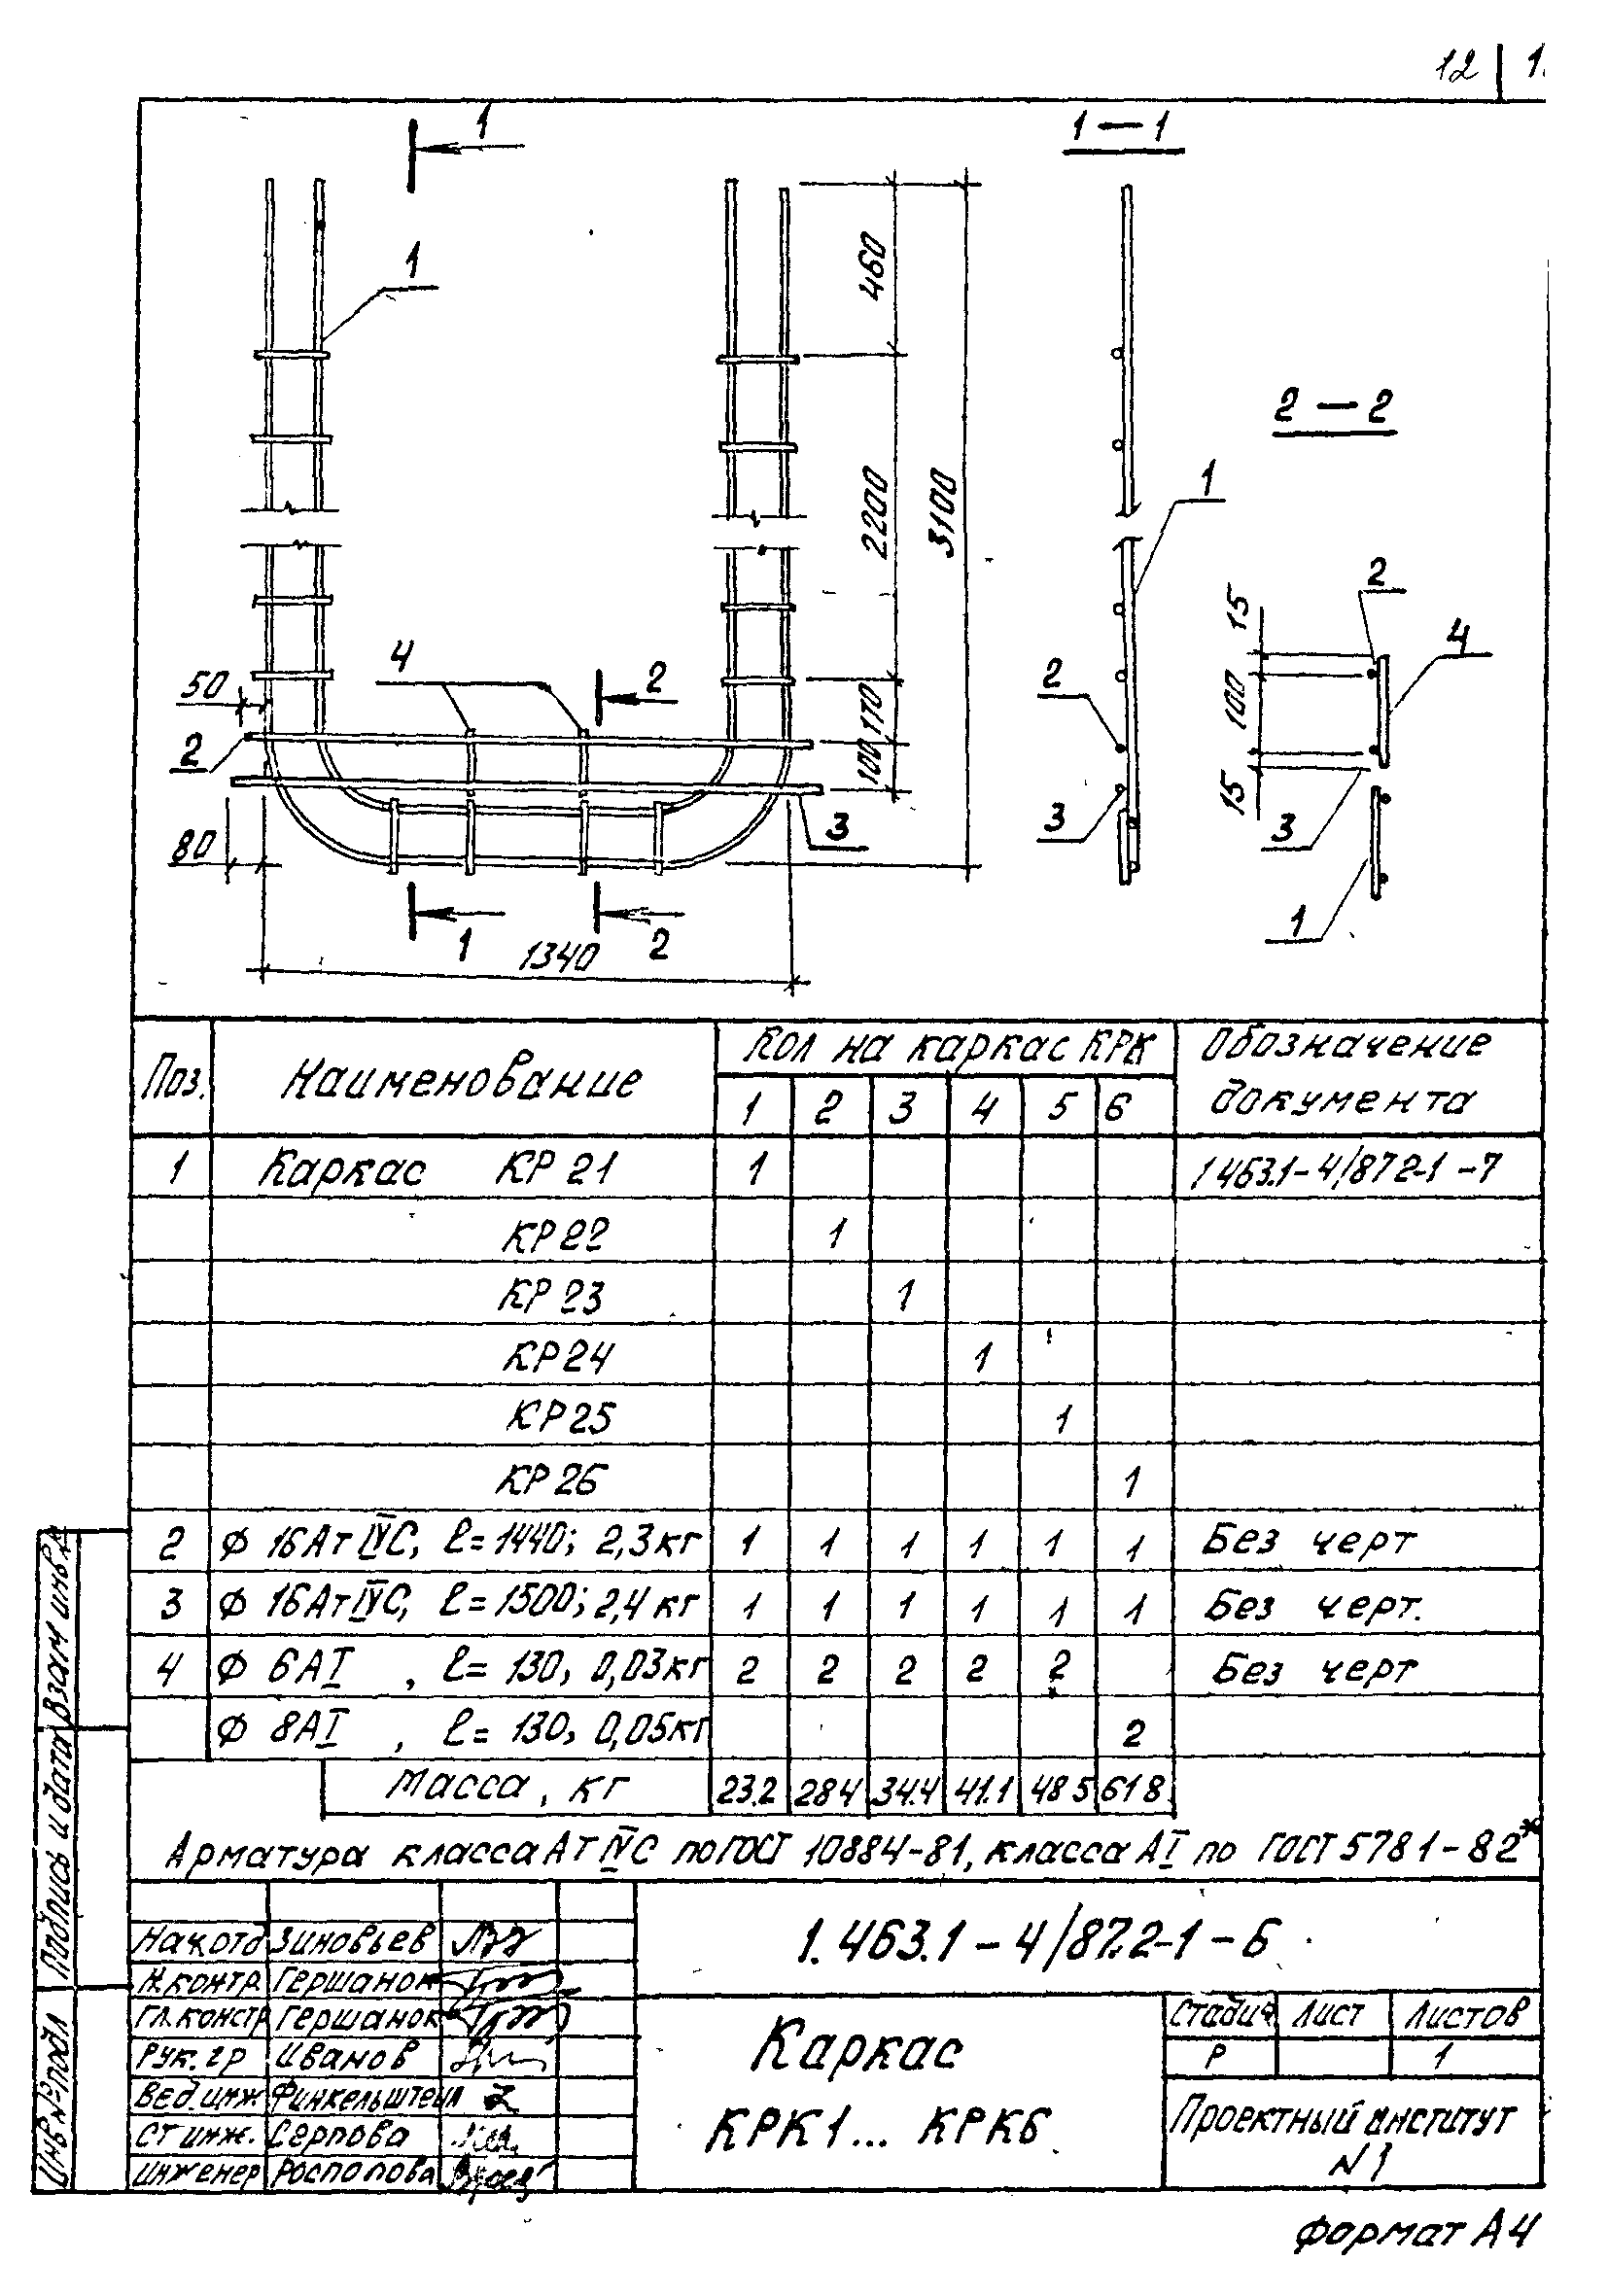 12
1
1 — 1
1
460
2 — 2
2200
3100
1
15
2
4
4
2
50
2
170
100
2
100
3
15
3
3
80
1
1
2
1340
Поз. Наименование Кол на каркас КРК Обозначение документа
1 2 3 4 5 6
1 Каркас КР 21 1 1 463.1-4/872-1-7
КР 22 1
КР 23 1
КР 24 1
КР 25 1
КР 26 1
2 Ф 16 Ат IVС, ℓ= 1440; 2,3 кг 1 1 1 1 1 1 Без черт
3 Ф 16 Ат IVС, ℓ= 1500; 2,4 кг 1 1 1 1 1 1 Без черт.
4 Ф 6 АI , ℓ= 130, 0,03 кг 2 2 2 2 2 Без черт
Ф 8 АI , ℓ= 130, 0,05 кг 2
Масса, кг 23.2 284 34.4 41.1 48 5 61 8
Арматура класса Ат IVС по ГОСТ 10884-81, класса АI по ГОСТ 5781-82*
1.463.1-4/87.2-1-6
Нач.отд Зиновьев
Н.контр. Гершанок
Гл.констр Гершанок
Рук. гр Иванов
Вед.инж Финкельштейн
Ст инж. Серпова
Инженер Росполова
Каркас
КРК1... КРК6
Стадия Лист Листов
Р 1
Проектный институт
N 1
Взам инв №
Подпись и дата
Инв № подл
Формат А4